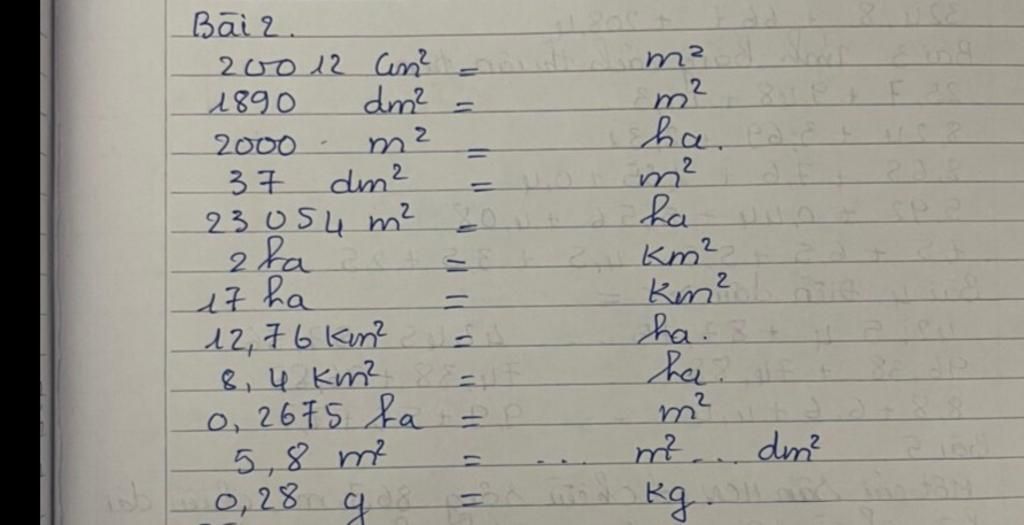 Bài 2.
20012 cm² = m²
1890 dm² = m²
2000 m² = ha.
37 dm² = m²
23054 m² = ha
2 ha = km²
17 ha = km²
12,76 km² = ha.
8,4 km² = ha.
0,2675 ha = m²
5,8 m² = ... m² ... dm²
0,28 g = kg.